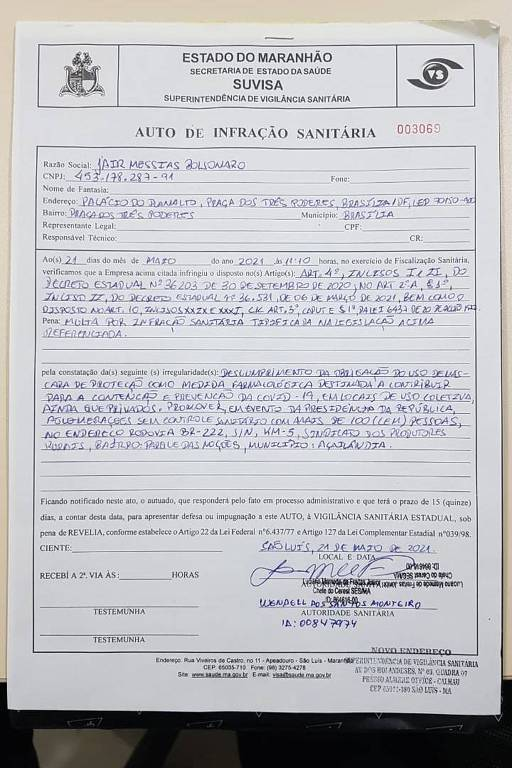 ESTADO DO MARANHÃO
SECRETARIA DE ESTADO DA SAÚDE
SUVISA
SUPERINTENDÊNCIA DE VIGILÂNCIA SANITÁRIA
VS
AUTO DE INFRAÇÃO SANITÁRIA 003069
Razão Social: JAIR MESSIAS BOLSONARO
CNPJ: 453.178.287-91 Fone:
Nome de Fantasia:
Endereço: PALÁCIO DO PLANALTO, PRAÇA DOS TRÊS PODERES, BRASÍLIA/DF, CEP 70150-
Bairro: PRAÇA DOS TRÊS PODERES Município: BRASÍLIA
Representante Legal: CPF:
Responsável Técnico: CR:
Ao(s) 21 dias do mês de MAIO do ano 2021 às 11:10 horas, no exercício de Fiscalização Sanitária,
verificamos que a Empresa acima citada infringiu o disposto no(s) Artigo(s): ART. 4º, INCISOS I E II, DO
DECRETO ESTADUAL Nº 36203 DE 30 DE SETEMBRO DE 2020, NO ART 2º-A, § 1º,
INCISO II, DO DECRETO ESTADUAL Nº 36.531, DE 06 DE MARÇO DE 2021, BEM COMO O
DISPOSTO NO ART. 10, INCISOS XXIX E XXXI, C/C ART. 3º, CAPUT E § 1º DA LEI 6437 DE 20 DE AGOSTO
Pena: MULTA POR INFRAÇÃO SANITÁRIA TIPIFICADA NA LEGISLAÇÃO ACIMA
REFERENCIADA.
pela constatação da(s) seguinte (s) irregularidade(s): DESCUMPRIMENTO DA OBRIGAÇÃO DO USO DE MÁS-
CARA DE PROTEÇÃO COMO MEDIDA FARMACOLÓGICA DESTINADA A CONTRIBUIR
PARA A CONTENÇÃO E PREVENÇÃO DA COVID-19, EM LOCAIS DE USO COLETIVO,
AINDA QUE PRIVADOS. PROMOVER, EM EVENTO DA PRESIDÊNCIA DA REPÚBLICA,
AGLOMERAÇÕES SEM CONTROLE SANITÁRIO COM MAIS DE 100 (CEM) PESSOAS,
NO ENDEREÇO RODOVIA BR-222, S/N, KM-5, SINDICATO DOS PRODUTORES
RURAIS, BAIRRO: PARQUE DAS NAÇÕES, MUNICÍPIO: AÇAILÂNDIA.
Ficando notificado neste ato, o autuado, que responderá pelo fato em processo administrativo e que terá o prazo de 15 (quinze)
dias, a contar desta data, para apresentar defesa ou impugnação a este AUTO, à VIGILÂNCIA SANITÁRIA ESTADUAL, sob
pena de REVELIA, conforme estabelece o Artigo 22 da Lei Federal nº6.437/77 e Artigo 127 da Lei Complementar Estadual nº039/98.
CIENTE: SÃO LUÍS, 21 DE MAIO DE 2021
LOCAL E DATA
RECEBI A 2ª. VIA ÀS: HORAS
Chefe do Cerest SES/MA
WENDELL DOS SANTOS MONTEIRO
TESTEMUNHA AUTORIDADE SANITÁRIA
ID: 00847974
TESTEMUNHA
Endereço: Rua Viveiros de Castro, no 11 - Apeadouro - São Luís - Maranhão
CEP: 65035-710 Fone: (98) 3275-4278
Site: www.saude.ma.gov.br E-mail: visa@saude.ma.gov.br
NOVO ENDEREÇO
SUPERINTENDÊNCIA DE VIGILÂNCIA SANITÁRIA
AV DOS HOLANDESES, Nº 03, QUADRA 07
PRÉDIO ALMERE OFFICE - CALHAU
SÃO LUÍS - MA